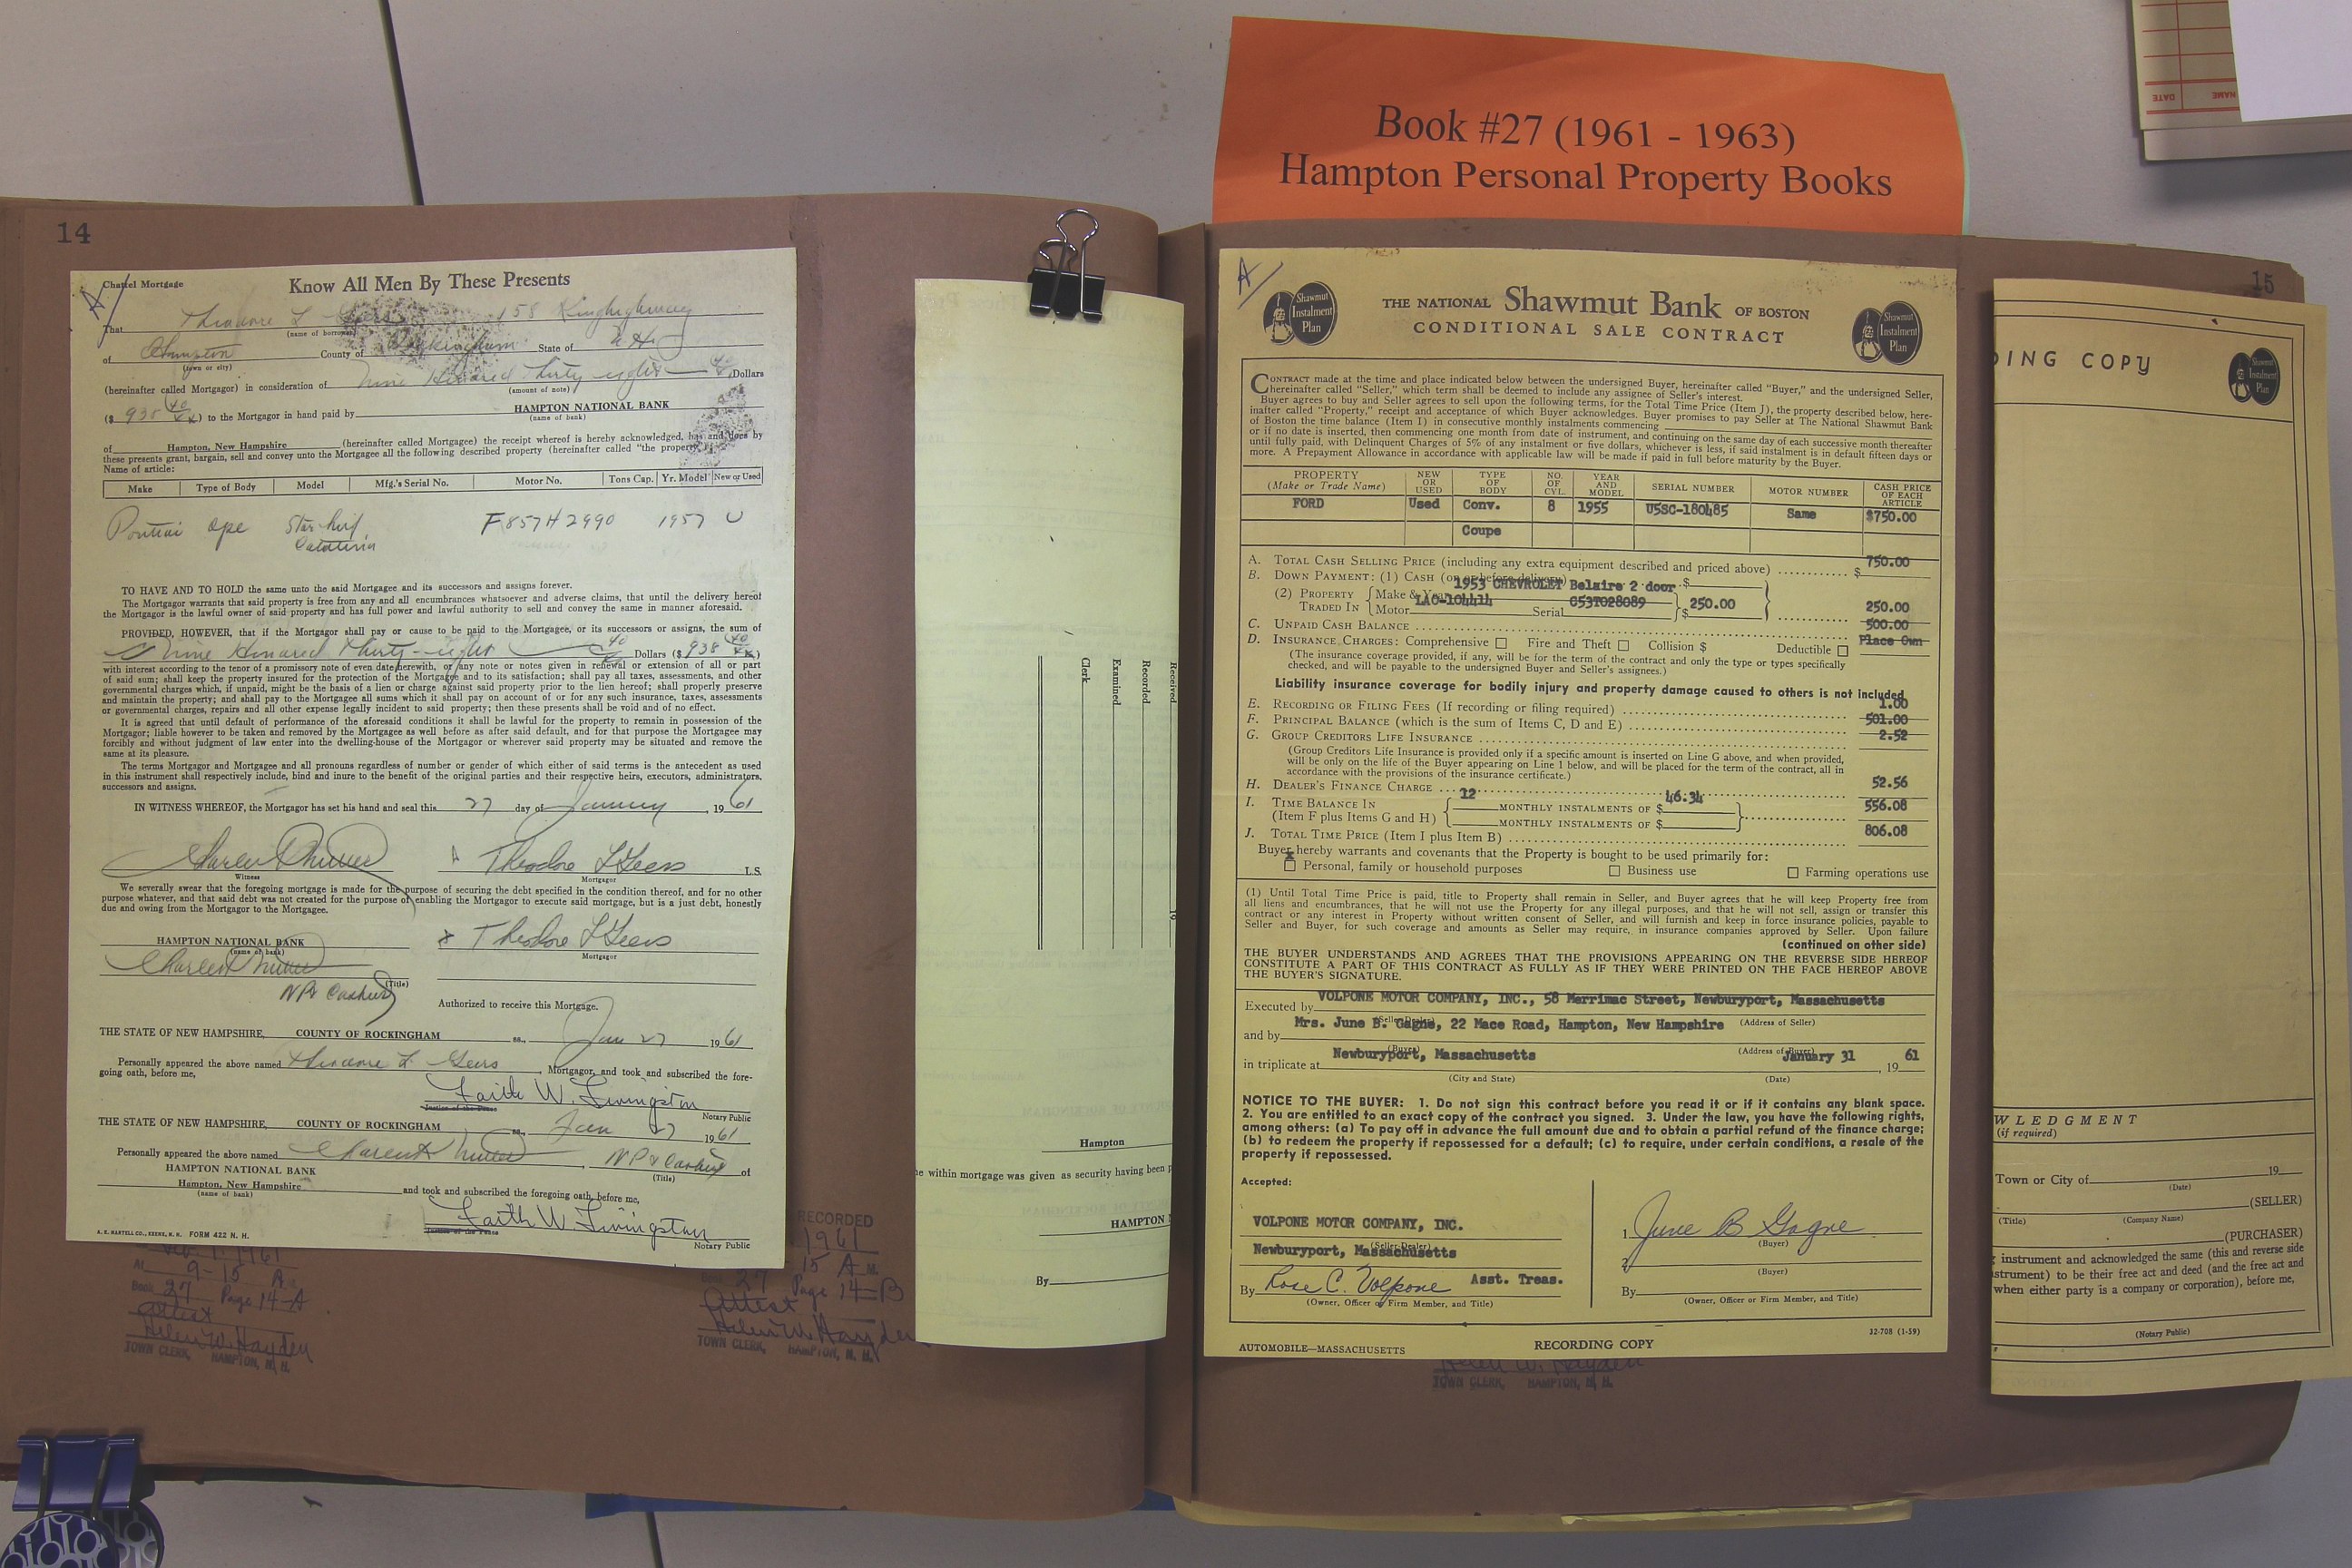 Book #27 (1961 - 1963)
Hampton Personal Property Books
DATE
NAME
14
Chattel Mortgage
Know All Men By These Presents
A
That Theodore L Geers 158 Kinghighway
(name of borrower)
of Hampton County of Rockingham State of N.H.
(town or city)
(hereinafter called Mortgagor) in consideration of Nine Hundred thirty-eight 40/ Dollars
(amount of note)
($ 938 40/xx) to the Mortgagor in hand paid by HAMPTON NATIONAL BANK
(name of bank)
of Hampton, New Hampshire (hereinafter called Mortgagee) the receipt whereof is hereby acknowledged, has and does by
these presents grant, bargain, sell and convey unto the Mortgagee all the following described property (hereinafter called "the property"):
Name of article:
Make Type of Body Model Mfg.'s Serial No. Motor No. Tons Cap. Yr. Model New or Used
Pontiac cpe Star Chief F857H2990 1957 U
Catalina
TO HAVE AND TO HOLD the same unto the said Mortgagee and its successors and assigns forever.
The Mortgagor warrants that said property is free from any and all encumbrances whatsoever and adverse claims, that until the delivery hereof
the Mortgagor is the lawful owner of said property and has full power and lawful authority to sell and convey the same in manner aforesaid.
PROVIDED, HOWEVER, that if the Mortgagor shall pay or cause to be paid to the Mortgagee, or its successors or assigns, the sum of
Nine Hundred thirty-eight 40/xx Dollars ($ 938 40/xx)
with interest according to the tenor of a promissory note of even date herewith, or any note or notes given in renewal or extension of all or part
of said sum; shall keep the property insured for the protection of the Mortgagee and to its satisfaction; shall pay all taxes, assessments, and other
governmental charges which, if unpaid, might be the basis of a lien or charge against said property prior to the lien hereof; shall properly preserve
and maintain the property; and shall pay to the Mortgagee all sums which it shall pay on account of or for any such insurance, taxes, assessments
or governmental charges, repairs and all other expense legally incident to said property; then these presents shall be void and of no effect.
It is agreed that until default of performance of the aforesaid conditions it shall be lawful for the property to remain in possession of the
Mortgagor; liable however to be taken and removed by the Mortgagee as well before as after said default, and for that purpose the Mortgagee may
forcibly and without judgment of law enter into the dwelling-house of the Mortgagor or wherever said property may be situated and remove the
same at its pleasure.
The terms Mortgagor and Mortgagee and all pronouns regardless of number or gender of which either of said terms is the antecedent as used
in this instrument shall respectively include, bind and inure to the benefit of the original parties and their respective heirs, executors, administrators,
successors and assigns.
IN WITNESS WHEREOF, the Mortgagor has set his hand and seal this 27 day of January, 1961
Theodore L Geers L.S.
Witness Mortgagor
We severally swear that the foregoing mortgage is made for the purpose of securing the debt specified in the condition thereof, and for no other
purpose whatever, and that said debt was not created for the purpose of enabling the Mortgagor to execute said mortgage, but is a just debt, honestly
due and owing from the Mortgagor to the Mortgagee.
HAMPTON NATIONAL BANK x Theodore L Geers
(name of bank) Mortgagor
(Title)
VP & Cashier
Authorized to receive this Mortgage.
THE STATE OF NEW HAMPSHIRE, COUNTY OF ROCKINGHAM ss., Jan 27 1961
Personally appeared the above named Theodore L Geers, Mortgagor, and took and subscribed the fore-
going oath, before me,
Faith W. Livingston
Justice of the Peace Notary Public
THE STATE OF NEW HAMPSHIRE, COUNTY OF ROCKINGHAM ss., Jan 27 1961
Personally appeared the above named VP & Cashier of
HAMPTON NATIONAL BANK (Title)
Hampton, New Hampshire and took and subscribed the foregoing oath, before me,
(name of bank)
Faith W. Livingston
Justice of the Peace Notary Public
A. E. MARTELL CO., KEENE, N. H. FORM 422 N. H.
1, 1961
At 9-15 A M.
Book 27 Page 14-A
Attest
Helen W. Hayden
TOWN CLERK, HAMPTON, N. H.
RECORDED
1961
15 A M.
Book 27 Page 14-B
Attest
Helen W. Hayden
TOWN CLERK, HAMPTON, N. H.
Clerk
Examined
Recorded
Received
19
Hampton
e within mortgage was given as security having been p
HAMPTON N
By
15
A
Shawmut Instalment Plan
THE NATIONAL Shawmut Bank OF BOSTON
CONDITIONAL SALE CONTRACT
Shawmut Instalment Plan
CONTRACT made at the time and place indicated below between the undersigned Buyer, hereinafter called "Buyer," and the undersigned Seller,
hereinafter called "Seller," which term shall be deemed to include any assignee of Seller's interest.
Buyer agrees to buy and Seller agrees to sell upon the following terms, for the Total Time Price (Item J), the property described below, here-
inafter called "Property," receipt and acceptance of which Buyer acknowledges. Buyer promises to pay Seller at The National Shawmut Bank
of Boston the time balance (Item I) in consecutive monthly instalments commencing
or if no date is inserted, then commencing one month from date of instrument, and continuing on the same day of each successive month thereafter
until fully paid, with Delinquent Charges of 5% of any instalment or five dollars, whichever is less, if said instalment is in default fifteen days or
more. A Prepayment Allowance in accordance with applicable law will be made if paid in full before maturity by the Buyer.
PROPERTY (Make or Trade Name) NEW OR USED TYPE OF BODY NO. OF CYL. YEAR AND MODEL SERIAL NUMBER MOTOR NUMBER CASH PRICE OF EACH ARTICLE
FORD Used Conv. 8 1955 U5SC-180485 Same $750.00
Coupe
A. TOTAL CASH SELLING PRICE (including any extra equipment described and priced above) $ 750.00
B. DOWN PAYMENT: (1) CASH (on or before delivery) $
(2) PROPERTY TRADED IN Make & Year 1953 CHEVROLET Belaire 2 door
Motor LAO-104414 Serial C53T028089 $ 250.00 250.00
C. UNPAID CASH BALANCE 500.00
D. INSURANCE CHARGES: Comprehensive Fire and Theft Collision $ Deductible Place Own
(The insurance coverage provided, if any, will be for the term of the contract and only the type or types specifically
checked, and will be payable to the undersigned Buyer and Seller's assignees.)
Liability insurance coverage for bodily injury and property damage caused to others is not included
E. RECORDING OR FILING FEES (If recording or filing required) 1.00
F. PRINCIPAL BALANCE (which is the sum of Items C, D and E) 501.00
G. GROUP CREDITORS LIFE INSURANCE 2.52
(Group Creditors Life Insurance is provided only if a specific amount is inserted on Line G above, and when provided,
will be only on the life of the Buyer appearing on Line 1 below, and will be placed for the term of the contract, all in
accordance with the provisions of the insurance certificate.)
H. DEALER'S FINANCE CHARGE 52.56
I. TIME BALANCE IN 12 MONTHLY INSTALMENTS OF $ 46.34 556.08
(Item F plus Items G and H) MONTHLY INSTALMENTS OF $
J. TOTAL TIME PRICE (Item I plus Item B) 806.08
Buyer hereby warrants and covenants that the Property is bought to be used primarily for:
x Personal, family or household purposes Business use Farming operations use
(1) Until Total Time Price is paid, title to Property shall remain in Seller, and Buyer agrees that he will keep Property free from
all liens and encumbrances, that he will not use the Property for any illegal purposes, and that he will not sell, assign or transfer this
contract or any interest in Property without written consent of Seller, and will furnish and keep in force insurance policies, payable to
Seller and Buyer, for such coverage and amounts as Seller may require, in insurance companies approved by Seller. Upon failure
(continued on other side)
THE BUYER UNDERSTANDS AND AGREES THAT THE PROVISIONS APPEARING ON THE REVERSE SIDE HEREOF
CONSTITUTE A PART OF THIS CONTRACT AS FULLY AS IF THEY WERE PRINTED ON THE FACE HEREOF ABOVE
THE BUYER'S SIGNATURE.
Executed by VOLPONE MOTOR COMPANY, INC., 58 Merrimac Street, Newburyport, Massachusetts
(Seller-Dealer) (Address of Seller)
and by Mrs. June B. Gagne, 22 Mace Road, Hampton, New Hampshire
(Buyer) (Address of Buyer)
in triplicate at Newburyport, Massachusetts January 31, 19 61
(City and State) (Date)
NOTICE TO THE BUYER: 1. Do not sign this contract before you read it or if it contains any blank space.
2. You are entitled to an exact copy of the contract you signed. 3. Under the law, you have the following rights,
among others: (a) To pay off in advance the full amount due and to obtain a partial refund of the finance charge;
(b) to redeem the property if repossessed for a default; (c) to require, under certain conditions, a resale of the
property if repossessed.
Accepted:
VOLPONE MOTOR COMPANY, INC.
(Seller-Dealer)
Newburyport, Massachusetts
By Rose C. Volpone Asst. Treas.
(Owner, Officer or Firm Member, and Title)
1. June B Gagne
(Buyer)
2.
(Buyer)
By
(Owner, Officer or Firm Member, and Title)
32-708 (1-59)
AUTOMOBILE—MASSACHUSETTS RECORDING COPY
Helen W. Hayden
TOWN CLERK, HAMPTON, N. H.
DING COPY
Shawmut Instalment Plan
WLEDGMENT
(if required)
19
Town or City of
(Date)
(SELLER)
(Title) (Company Name)
(PURCHASER)
instrument and acknowledged the same (this and reverse side
strument) to be their free act and deed (and the free act and
when either party is a company or corporation), before me,
(Notary Public)